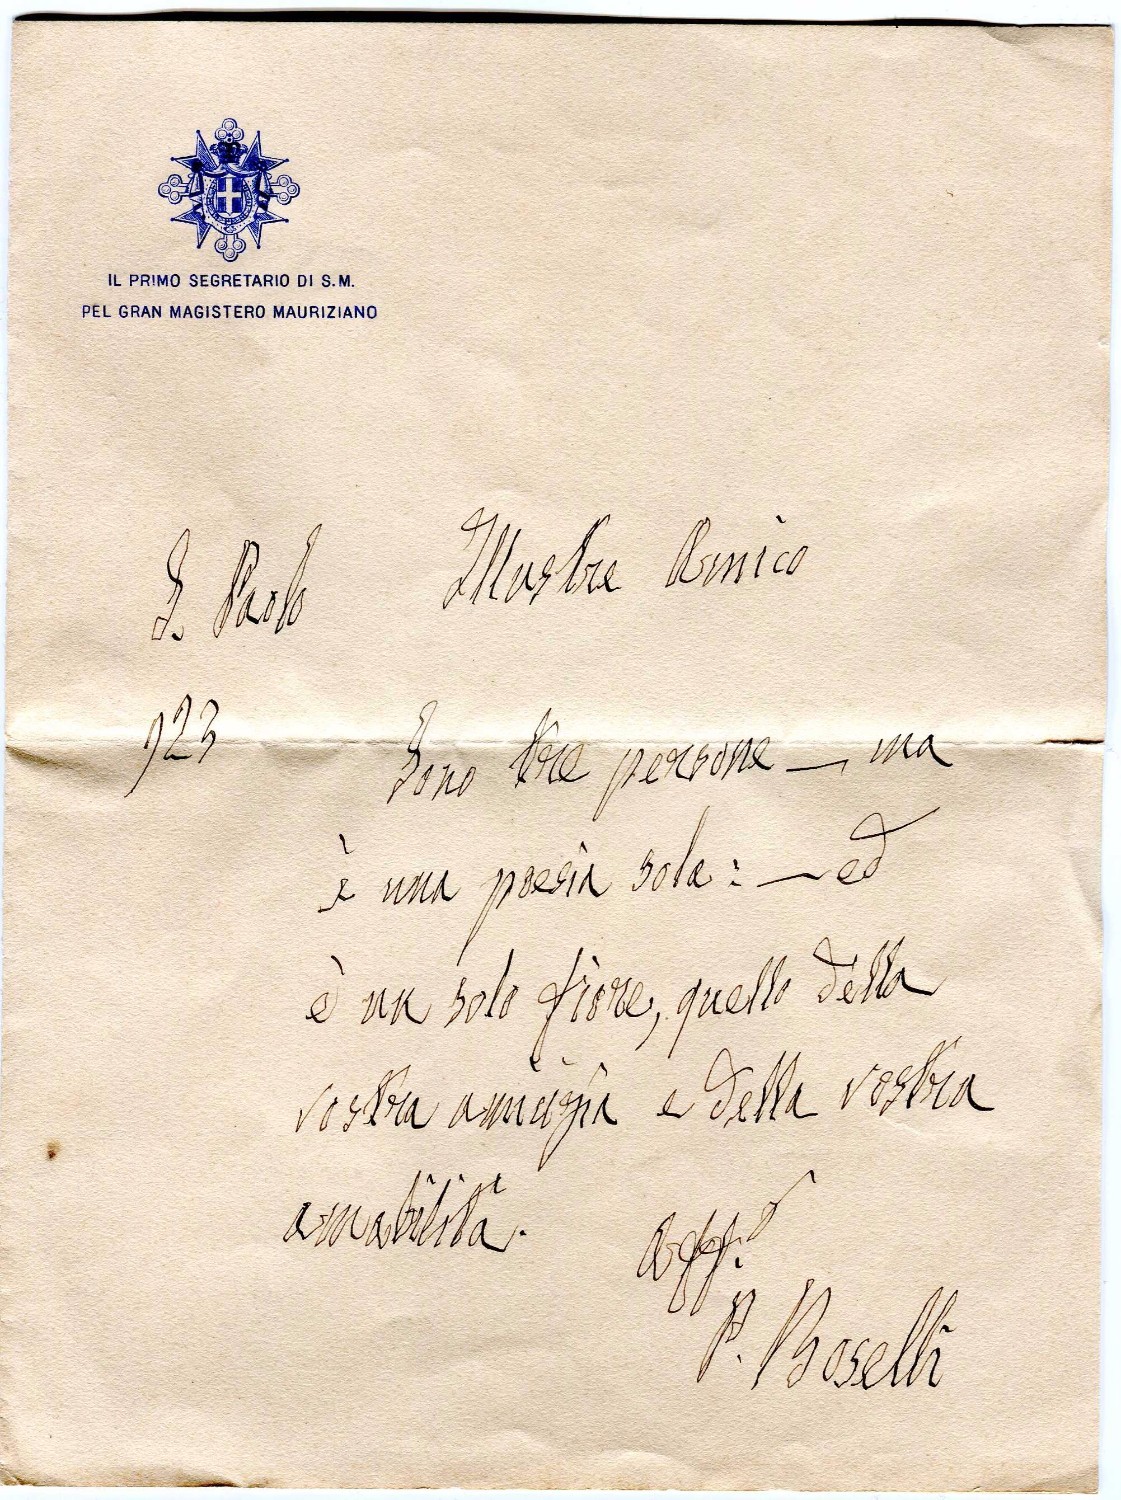 IL PRIMO SEGRETARIO DI S.M.
PEL GRAN MAGISTERO MAURIZIANO
S. Paolo
Illustre Amico
923
Sono tre persone — ma
è una poesia sola: — ed
è un solo fiore, quello della
vostra amicizia e della vostra
amabilità.
aff.o
P. Boselli